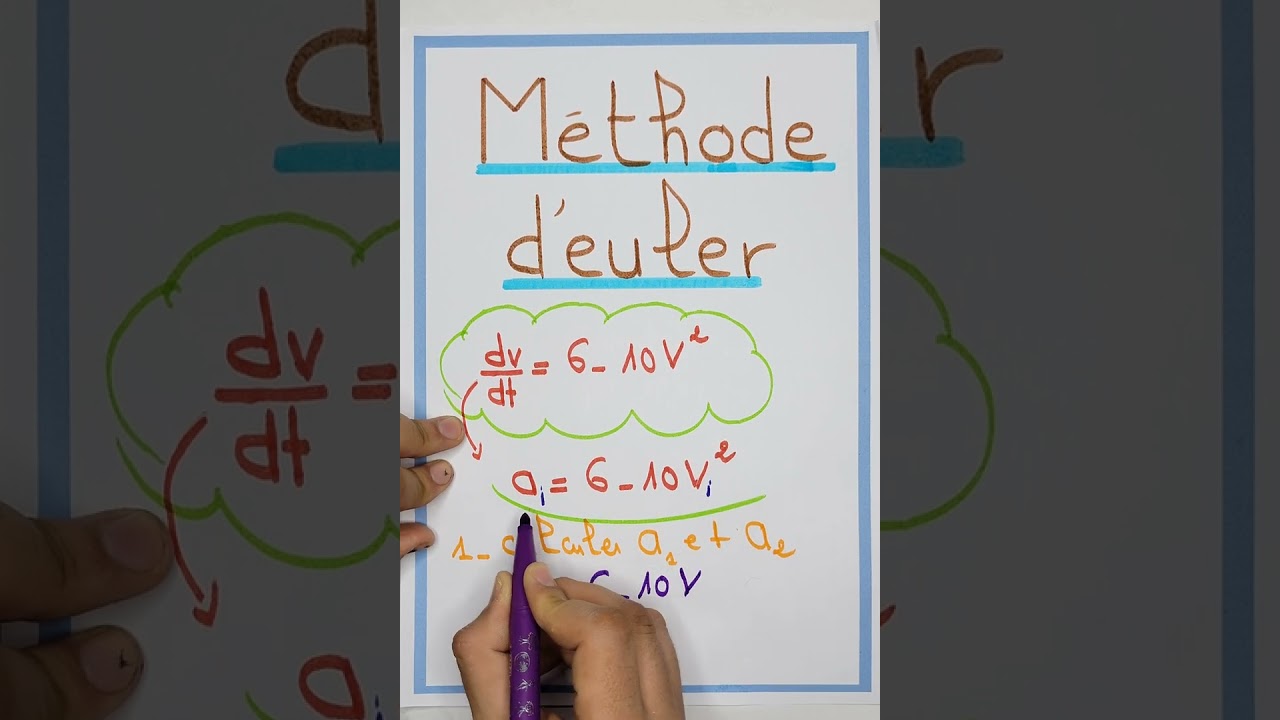 Méthode
d'euler
dv/dt = 6 - 10V²
aᵢ = 6 - 10Vᵢ²
1 - calculer a₁ et a₂
6 - 10V